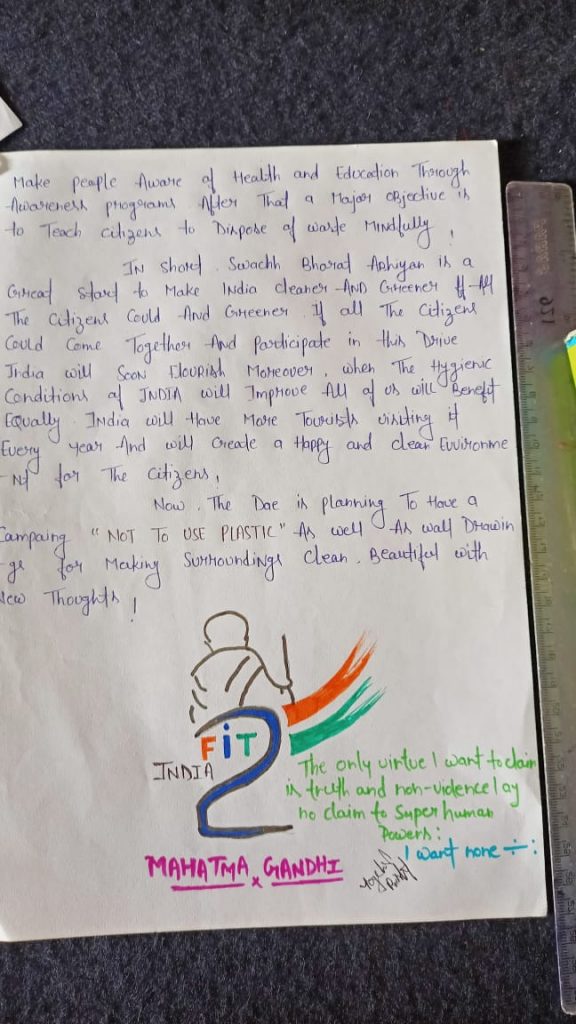 Make people Aware of Health and Education Through
Awareness programs After That a Major objective is
to Teach citizens to Dispose of waste Mindfully,
In short. Swachh Bharat Abhiyan is a
Great start to Make India cleaner AND Greener If All
The Citizens Could And Greener. If all The Citizens
Could Come Together And participate in this Drive
India will Soon Flourish Moreover, when The Hygienic
Conditions of INDIA will Improve All of us will Benefit
Equally. India will Have More Tourists visiting it
Every year And will Create a Happy and clean Environme
-Nt for The Citizens,
Now, The Dae is planning To Have a
Campaing "NOT TO USE PLASTIC" As well As wall Drawin
-gs for Making Surroundings Clean. Beautiful with
New Thoughts!
FiT
INDIA
2
The only virtue I want to claim
is truth and non-violence I ay
no claim to Super human
Powers:
I want none ÷:
MAHATMA x GANDHI